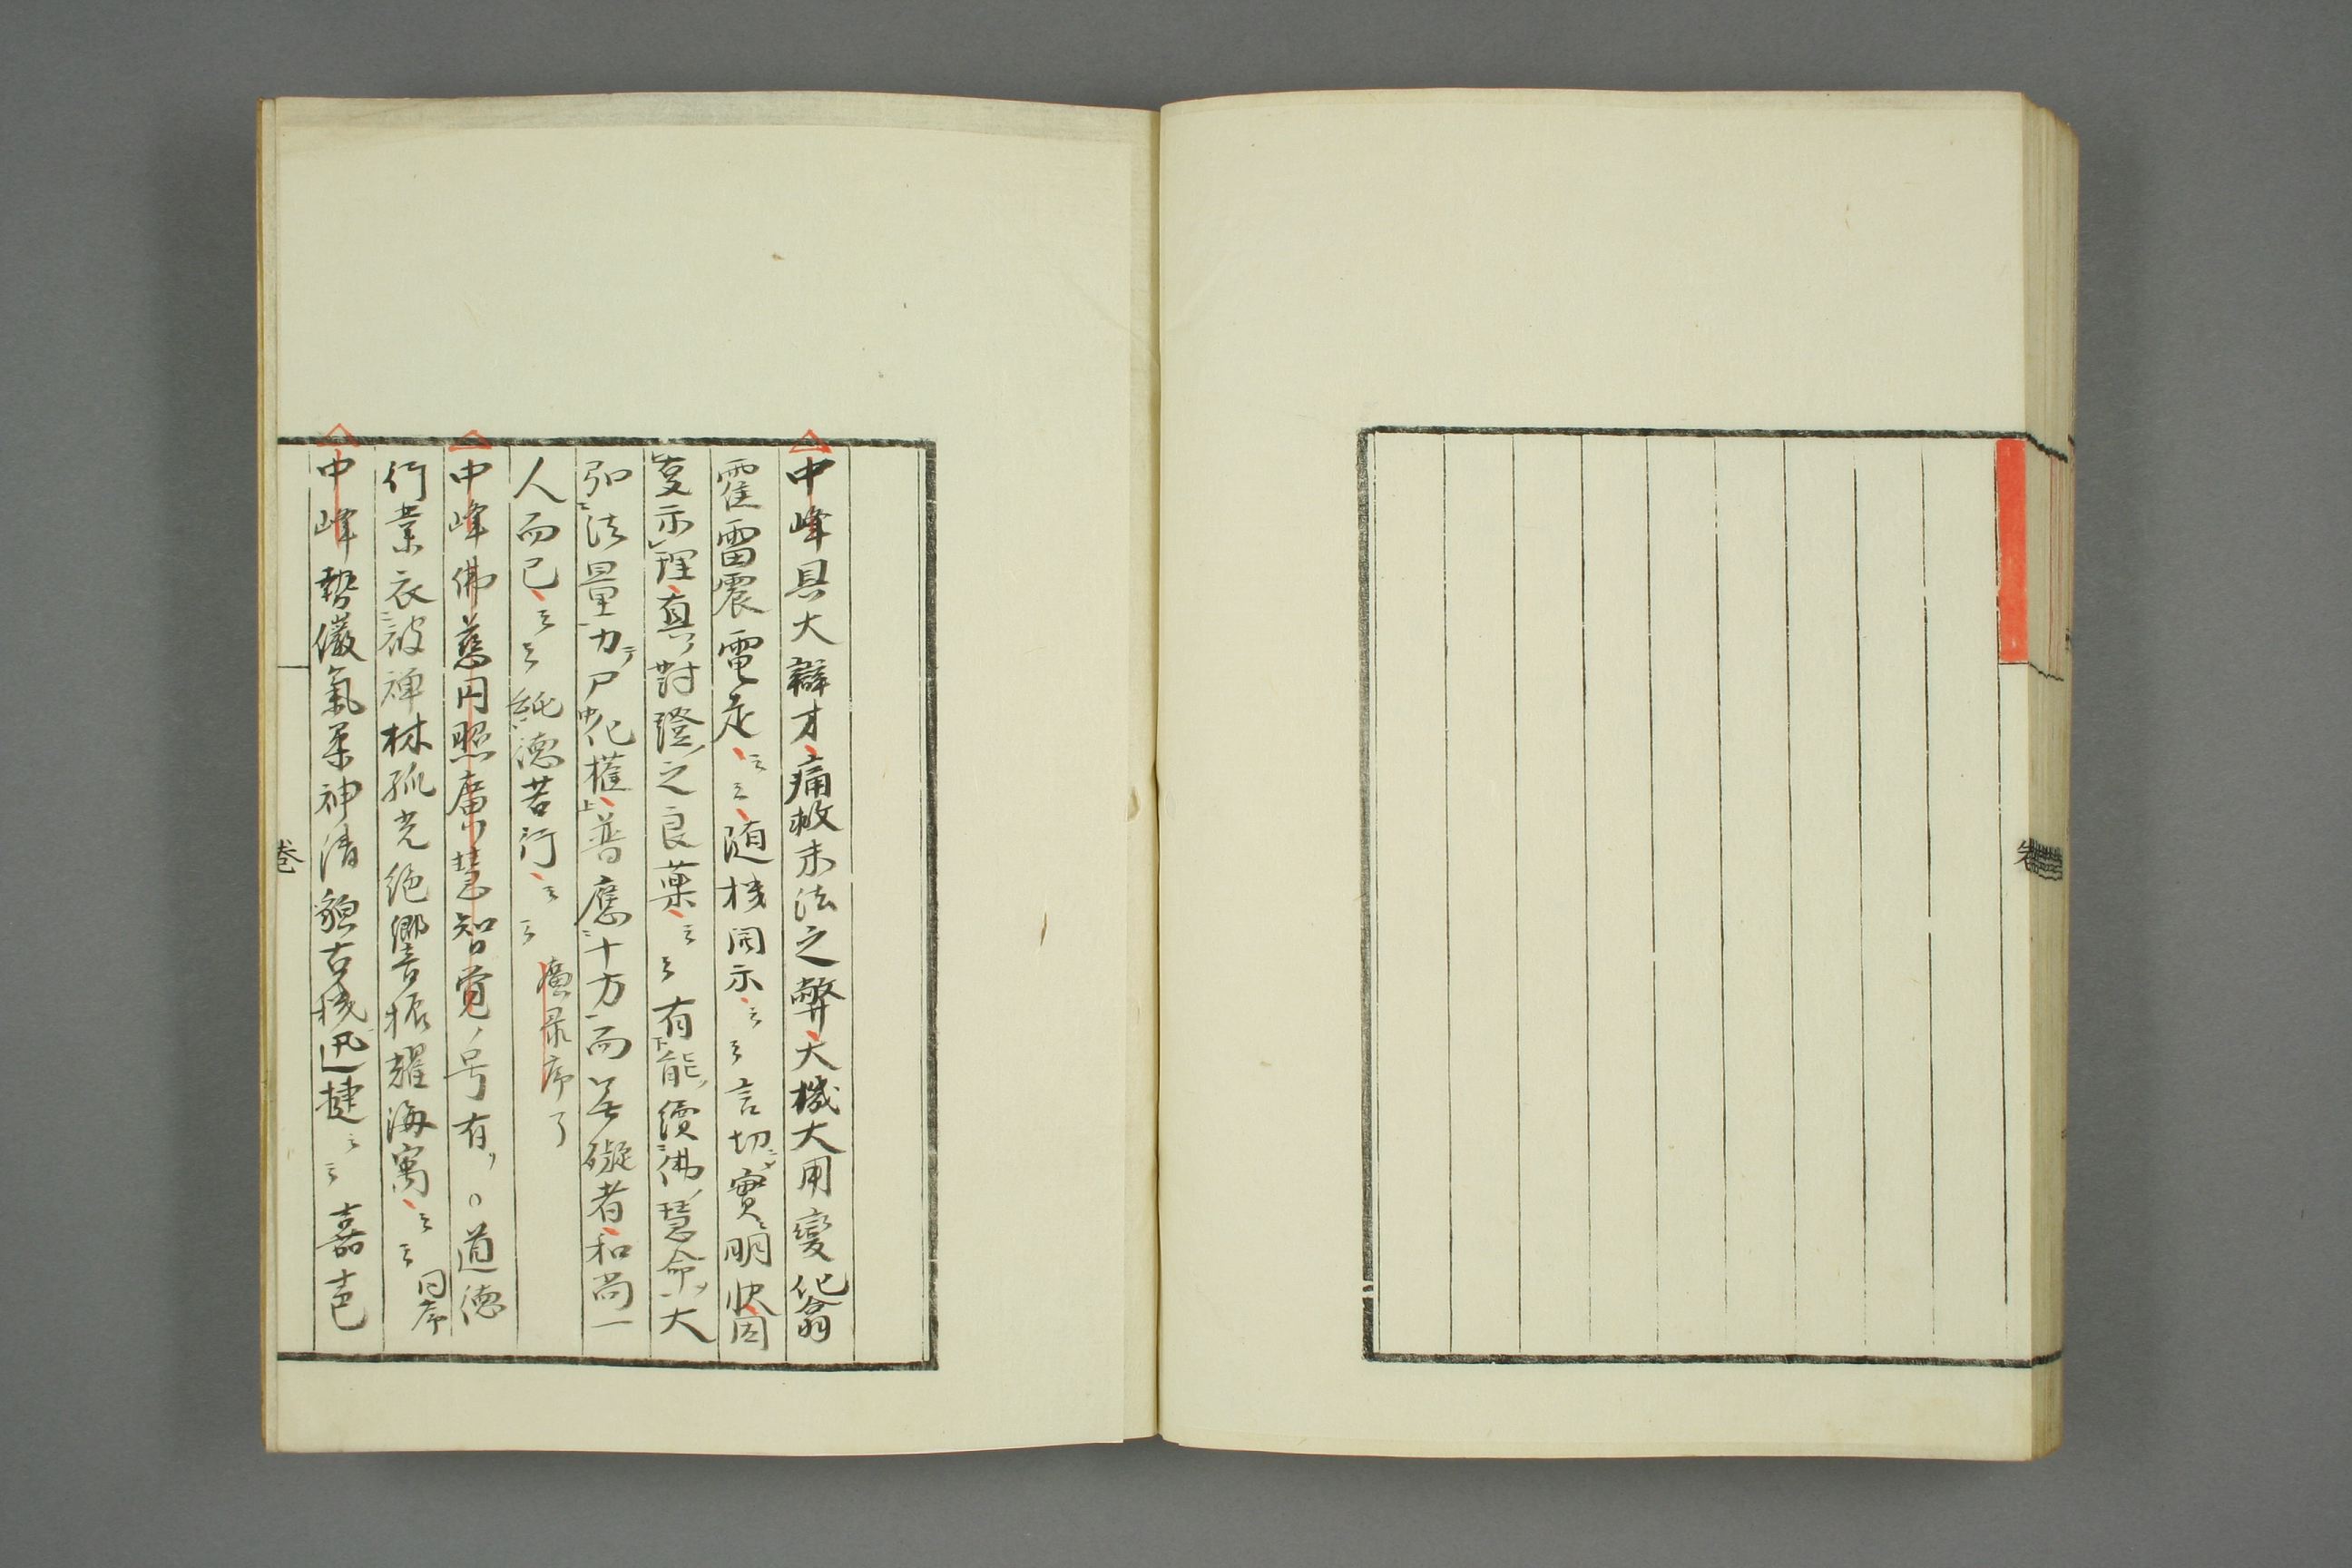 中峰具大辯才痛救末法之弊大機大用變化翕
霍雷震電走云云随機開示云云言切實明快因
支示理真對證之良藥云云有能續佛慧命大
弘法量力尸化權普應十方而無礙者和尚一
人而已云云純德苦行云云廣录序了
中峰佛慈円照廣慧智覚号有道德
行業衣被禅林孤光絶響振耀海寓云云同序
中峰 儼氣柔神清貌古機迅捷云云嘉
卷